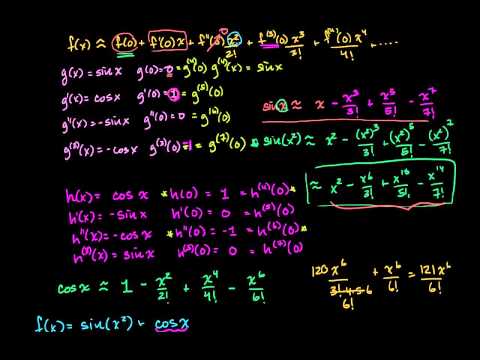 f(x) ≈ f(0) + f'(0)x + f''(0) x²/2! + f⁽³⁾(0) x³/3! + f⁽⁴⁾(0) x⁴/4! + .....
g(x) = sin x g(0) = 0 = g⁽⁴⁾(0) g⁽⁴⁾(x) = sin x
g'(x) = cos x g'(0) = 1 = g⁽⁵⁾(0)
g''(x) = -sin x g''(0) = 0 = g⁽⁶⁾(0)
g⁽³⁾(x) = -cos x g⁽³⁾(0) = -1 = g⁽⁷⁾(0)
sin x ≈ x - x³/3! + x⁵/5! - x⁷/7!
sin(x²) ≈ x² - (x²)³/3! + (x²)⁵/5! - (x²)⁷/7!
≈ x² - x⁶/3! + x¹⁰/5! - x¹⁴/7!
h(x) = cos x * h(0) = 1 = h⁽⁴⁾(0) *
h'(x) = -sin x h'(0) = 0 = h⁽⁵⁾(0)
h''(x) = -cos x * h''(0) = -1 = h⁽⁶⁾(0) *
h⁽³⁾(x) = sin x h⁽³⁾(0) = 0 = h⁽⁷⁾(0)
cos x ≈ 1 - x²/2! + x⁴/4! - x⁶/6!
120x⁶/3!·4·5·6 + x⁶/6! = 121x⁶/6!
6!
f(x) = sin(x²) + cos x